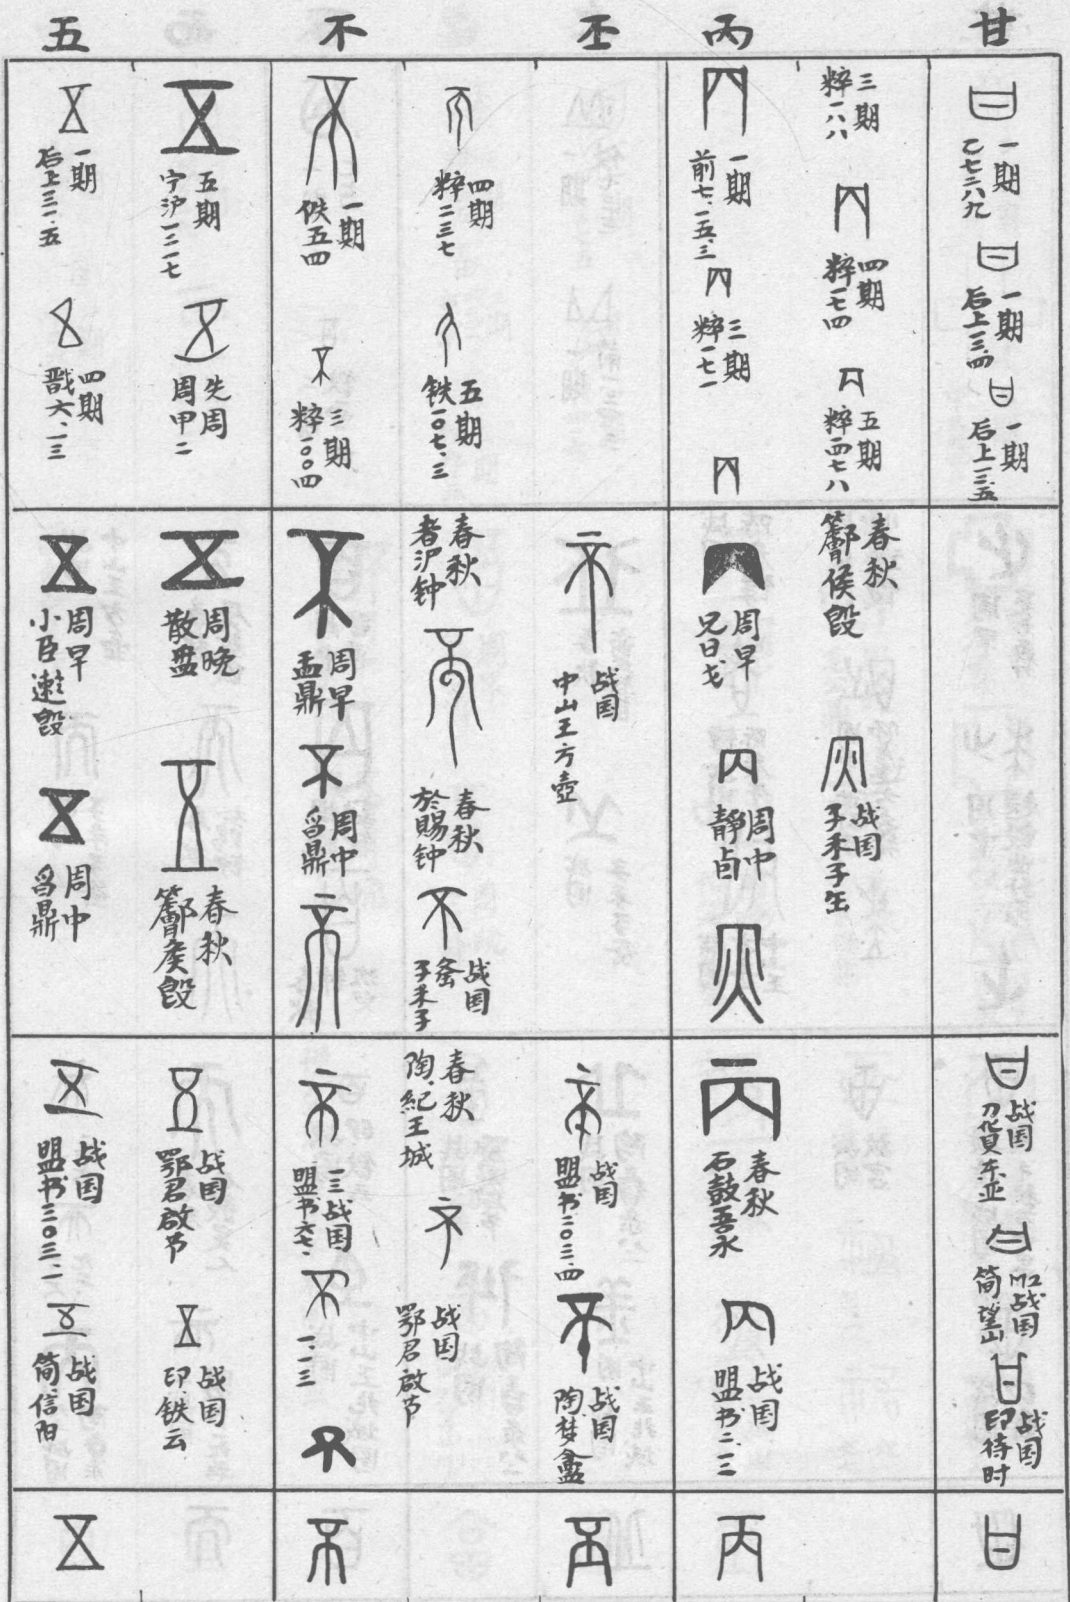 五 不 丕 丙 甘
一期
后上三一.五
四期
戬六.一三
五期
宁沪一.二一七
先周
周甲二
一期
佚五四
三期
粹一〇〇四
四期
粹二三七
五期
铁一〇七.三
一期
前七.一五.三
三期
粹一七一
三期
粹一八八
四期
粹一七四
五期
粹一四七八
一期
乙七二八九
一期
后上一三.四
一期
后上一三.五
周早
小臣
周中
曶鼎
周晚
散盘
春秋
鄦侯𣪘
周早
盂鼎
周中
曶鼎
春秋
者沪钟
春秋
於賜钟
战国
子禾子釜
战国
中山王方壶
周早
兄日戈
周中
靜卣
春秋
侯𣪘
战国
子禾子缶
战国
盟书二〇三.一
战国
简信阳
战国
鄂君啟节
战国
印.铁云
战国
盟书六七.
一.二三
春秋
陶.紀王城
战国
鄂君啟节
战国
盟书二〇三.四
战国
陶.梦盦
春秋
石鼓吾水
战国
盟书二.一三
战国
刀货东亚
战国
简望山
战国
印待时